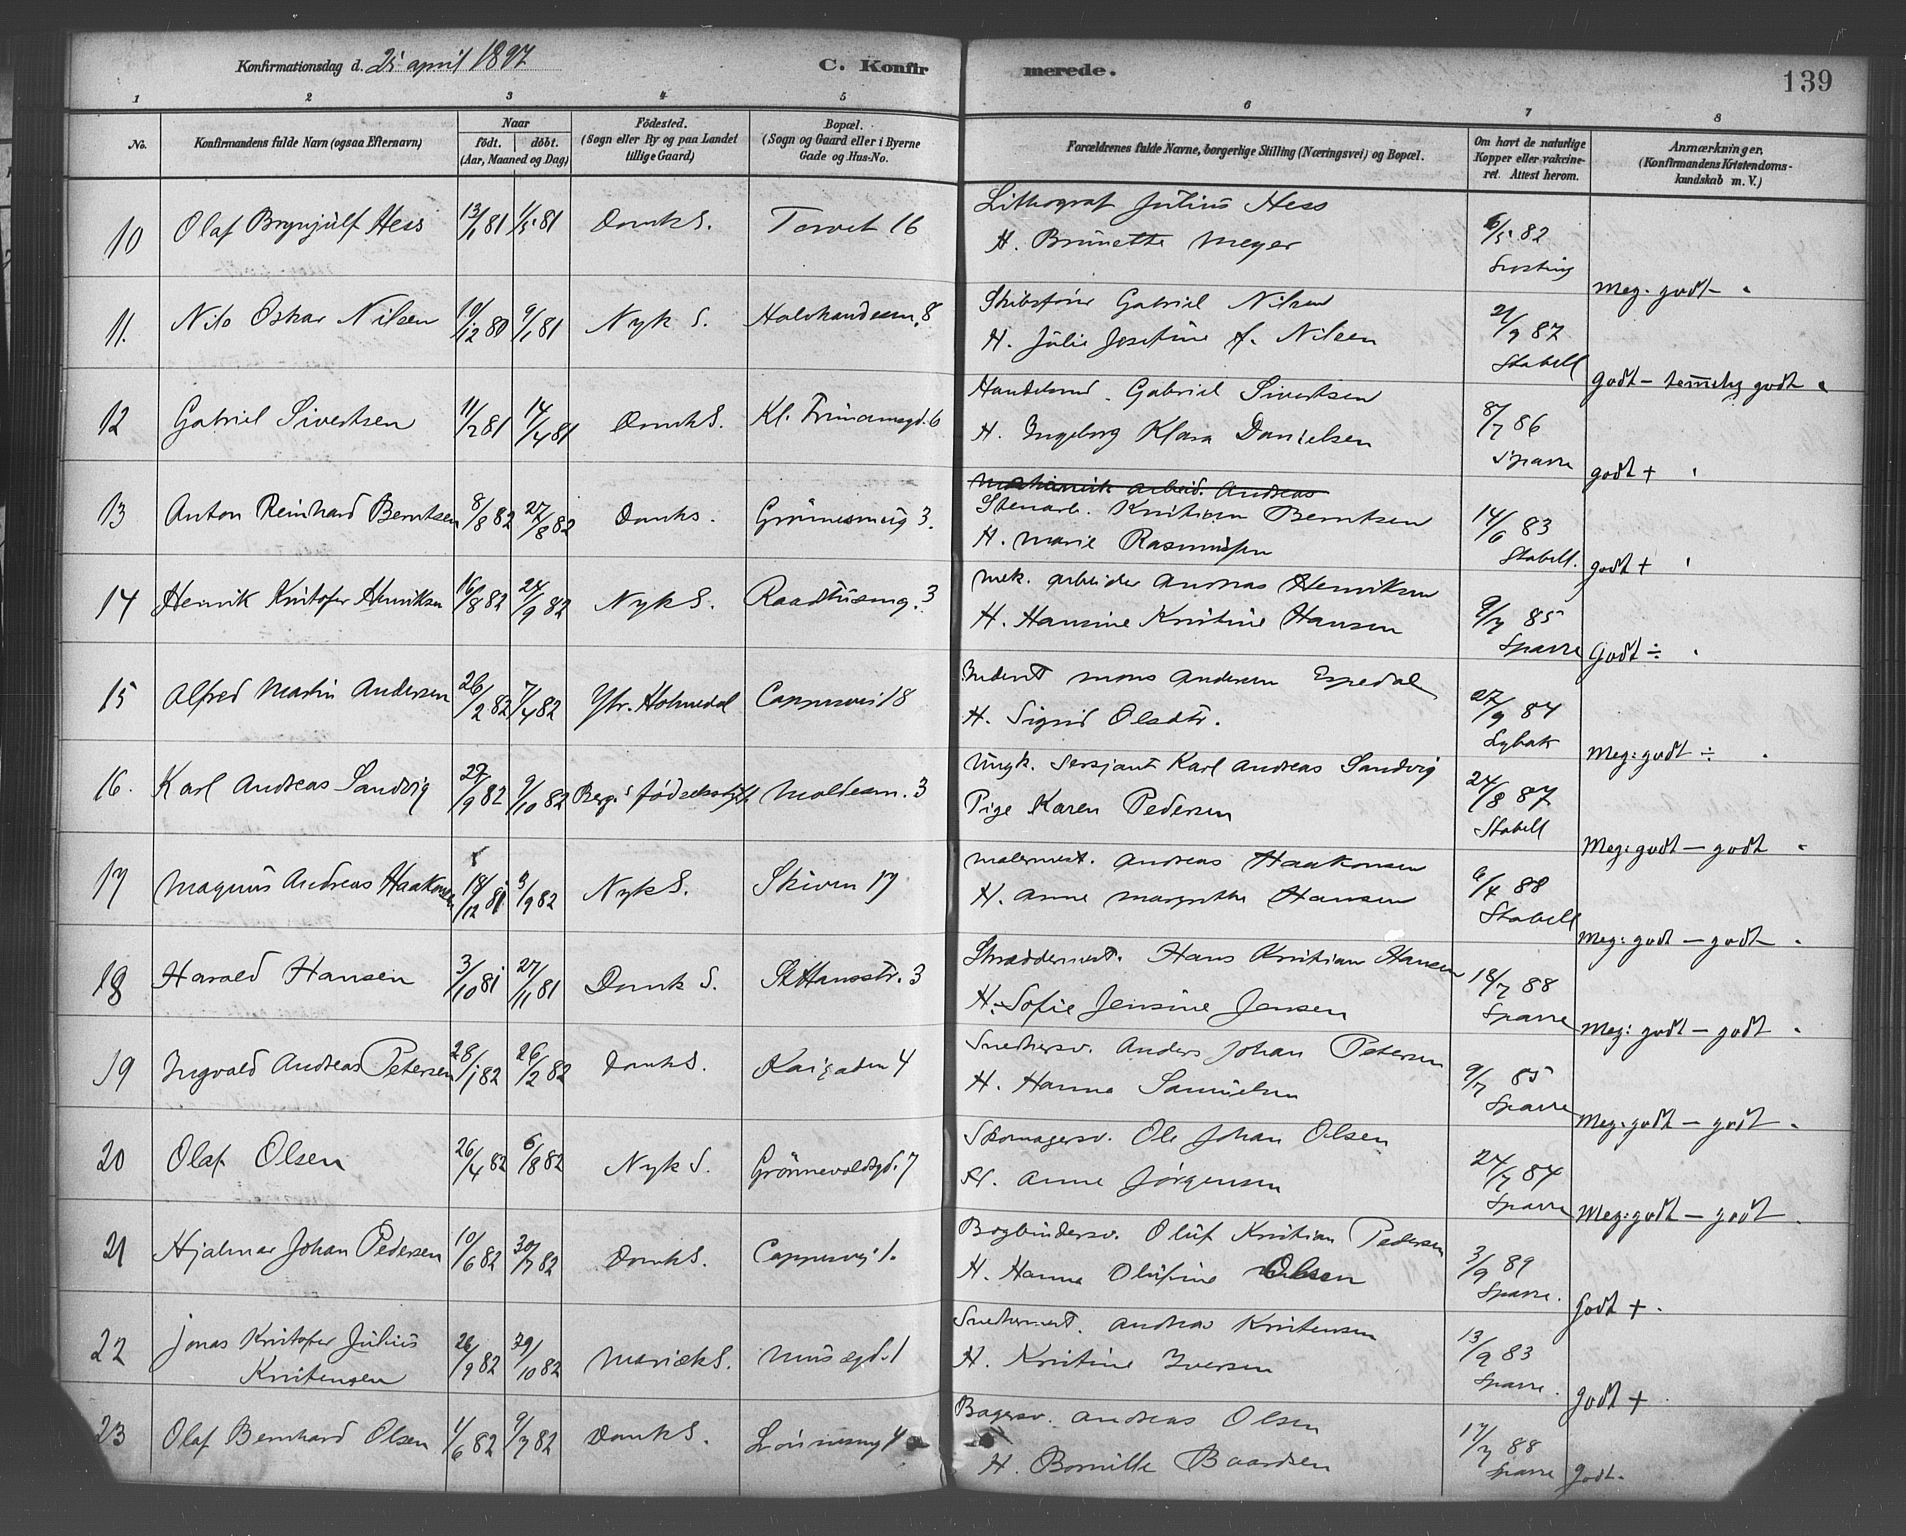 Konfirmationsdag d. 25 april 1897
C. Konfirmerede.
139
1 2 3 4 5 6 7 8
No.
Konfirmandens fulde Navn (ogsaa Efternavn)
Naar
födt. döbt.
(Aar, Maaned og Dag)
Födested.
(Sogn eller By og paa Landet
tillige Gaard)
Bopæl.
(Sogn og Gaard eller i Byerne
Gade og Hus-No.
Forældrenes fulde Navne, borgerlige Stilling (Næringsvei) og Bopæl.
Om havt de naturlige
Kopper eller vakcine-
ret. Attest herom.
Anmærkninger,
(Konfirmandens Kristendoms-
kundskab m. V.)
10 Olaf Brynjulf Hess 13/1 81 1/5 81 Domk S. Torvet 16
Lithograf Julius Hess
H. Brunette Meyer
6/5 82
Meg: godt -
11. Nils Oskar Nilsen 10/12 80 9/1 81 Nyk S. 8
Skibsfører Gabriel Nilsen
H. Julie Josefine f. Nilsen
21/9 87
Stabell
Godt - temmelig godt
12 Gabriel Sivertsen 11/2 81 17/4 81 Domk S. 6
Gabriel Sivertsen
H. Ingeborg Klara Danielsen
8/7 86
Sparre
godt +
13 Anton Reinhard Berntsen 8/8 82 27/8 82 Domk S. 3.
mekanisk arbeid. Andreas
Stenarb. Kristian Berntsen
H. Marie Rasmussen
14/6 83
Stabell.
godt +
14 Henrik Kristofer Henriksen 16/8 82 24/9 82 Nyk S. Raadhusmug. 3
mek. arbeider Andreas Henriksen
H. Hansine Kristine Hansen
9/7 85
Sparre
Godt ÷
15 Alfred Martin Andersen 26/2 82 7/4 82 Ytr. Holmedal Cappesvei 18
Mons Andersen Espedal
H. Sigrid Olsdtr.
27/9 84
Meg: godt ÷
16. Karl Andreas Sandvig 27/9 82 9/10 82 Berg.s fødselsstift. 3
Ungk. Sersjant Karl Andreas Sandvig
Pige Karen Pedersen
24/8 87
Stabell
Meg: godt - godt
17 Magnus Andreas Haakonsen 18/12 81 3/9 82 Nyk S. Skiven 17
Malermest. Andreas Haakonsen
H. Anne Margrethe Hansen
6/4 88
Stabell
Meg: godt - godt
18 Harald Hansen 3/10 81 27/11 81 Domk S. St Hansstr. 3
Skræddermest. Hans Kristian Hansen
H. Sofie Jensine Jensen
18/7 88
Sparre
Meg: godt - godt
19 Ingvald Andreas Petersen 28/1 82 26/2 82 Domk S. Kaigaden 4
Snedkersv. Anders Johan Petersen
H. Hanna Samuelsen
9/7 85
Sparre
Meg: godt - godt
20 Olaf Olsen 26/4 82 6/8 82 Nyk S. Grønnevoldsgd. 7
Skomagersv. Ole Johan Olsen
H. Anne Jørgensen
24/7 84
Sparre
Meg: godt - godt
21 Hjalmar Johan Pedersen 10/6 82 30/7 82 Domk S. Cappesvei 1.
Bogbindersv. Oluf Kristian Pedersen
H. Hanna Olufine Olsen
3/9 89
Sparre.
Godt +
22 Jonas Kristofer Julius
Kristensen 26/9 82 29/10 82 Mariæk S. 1
Snedkermest. Andreas Kristensen
H. Kristine Iversen
13/9 83
Sparre.
Godt +
23 Olaf Bernhard Olsen 1/6 82 9/7 82 Domk S. 4
Bagersv. Andreas Olsen
H. Bornille Baardsen
17/7 88
Sparre
Godt.